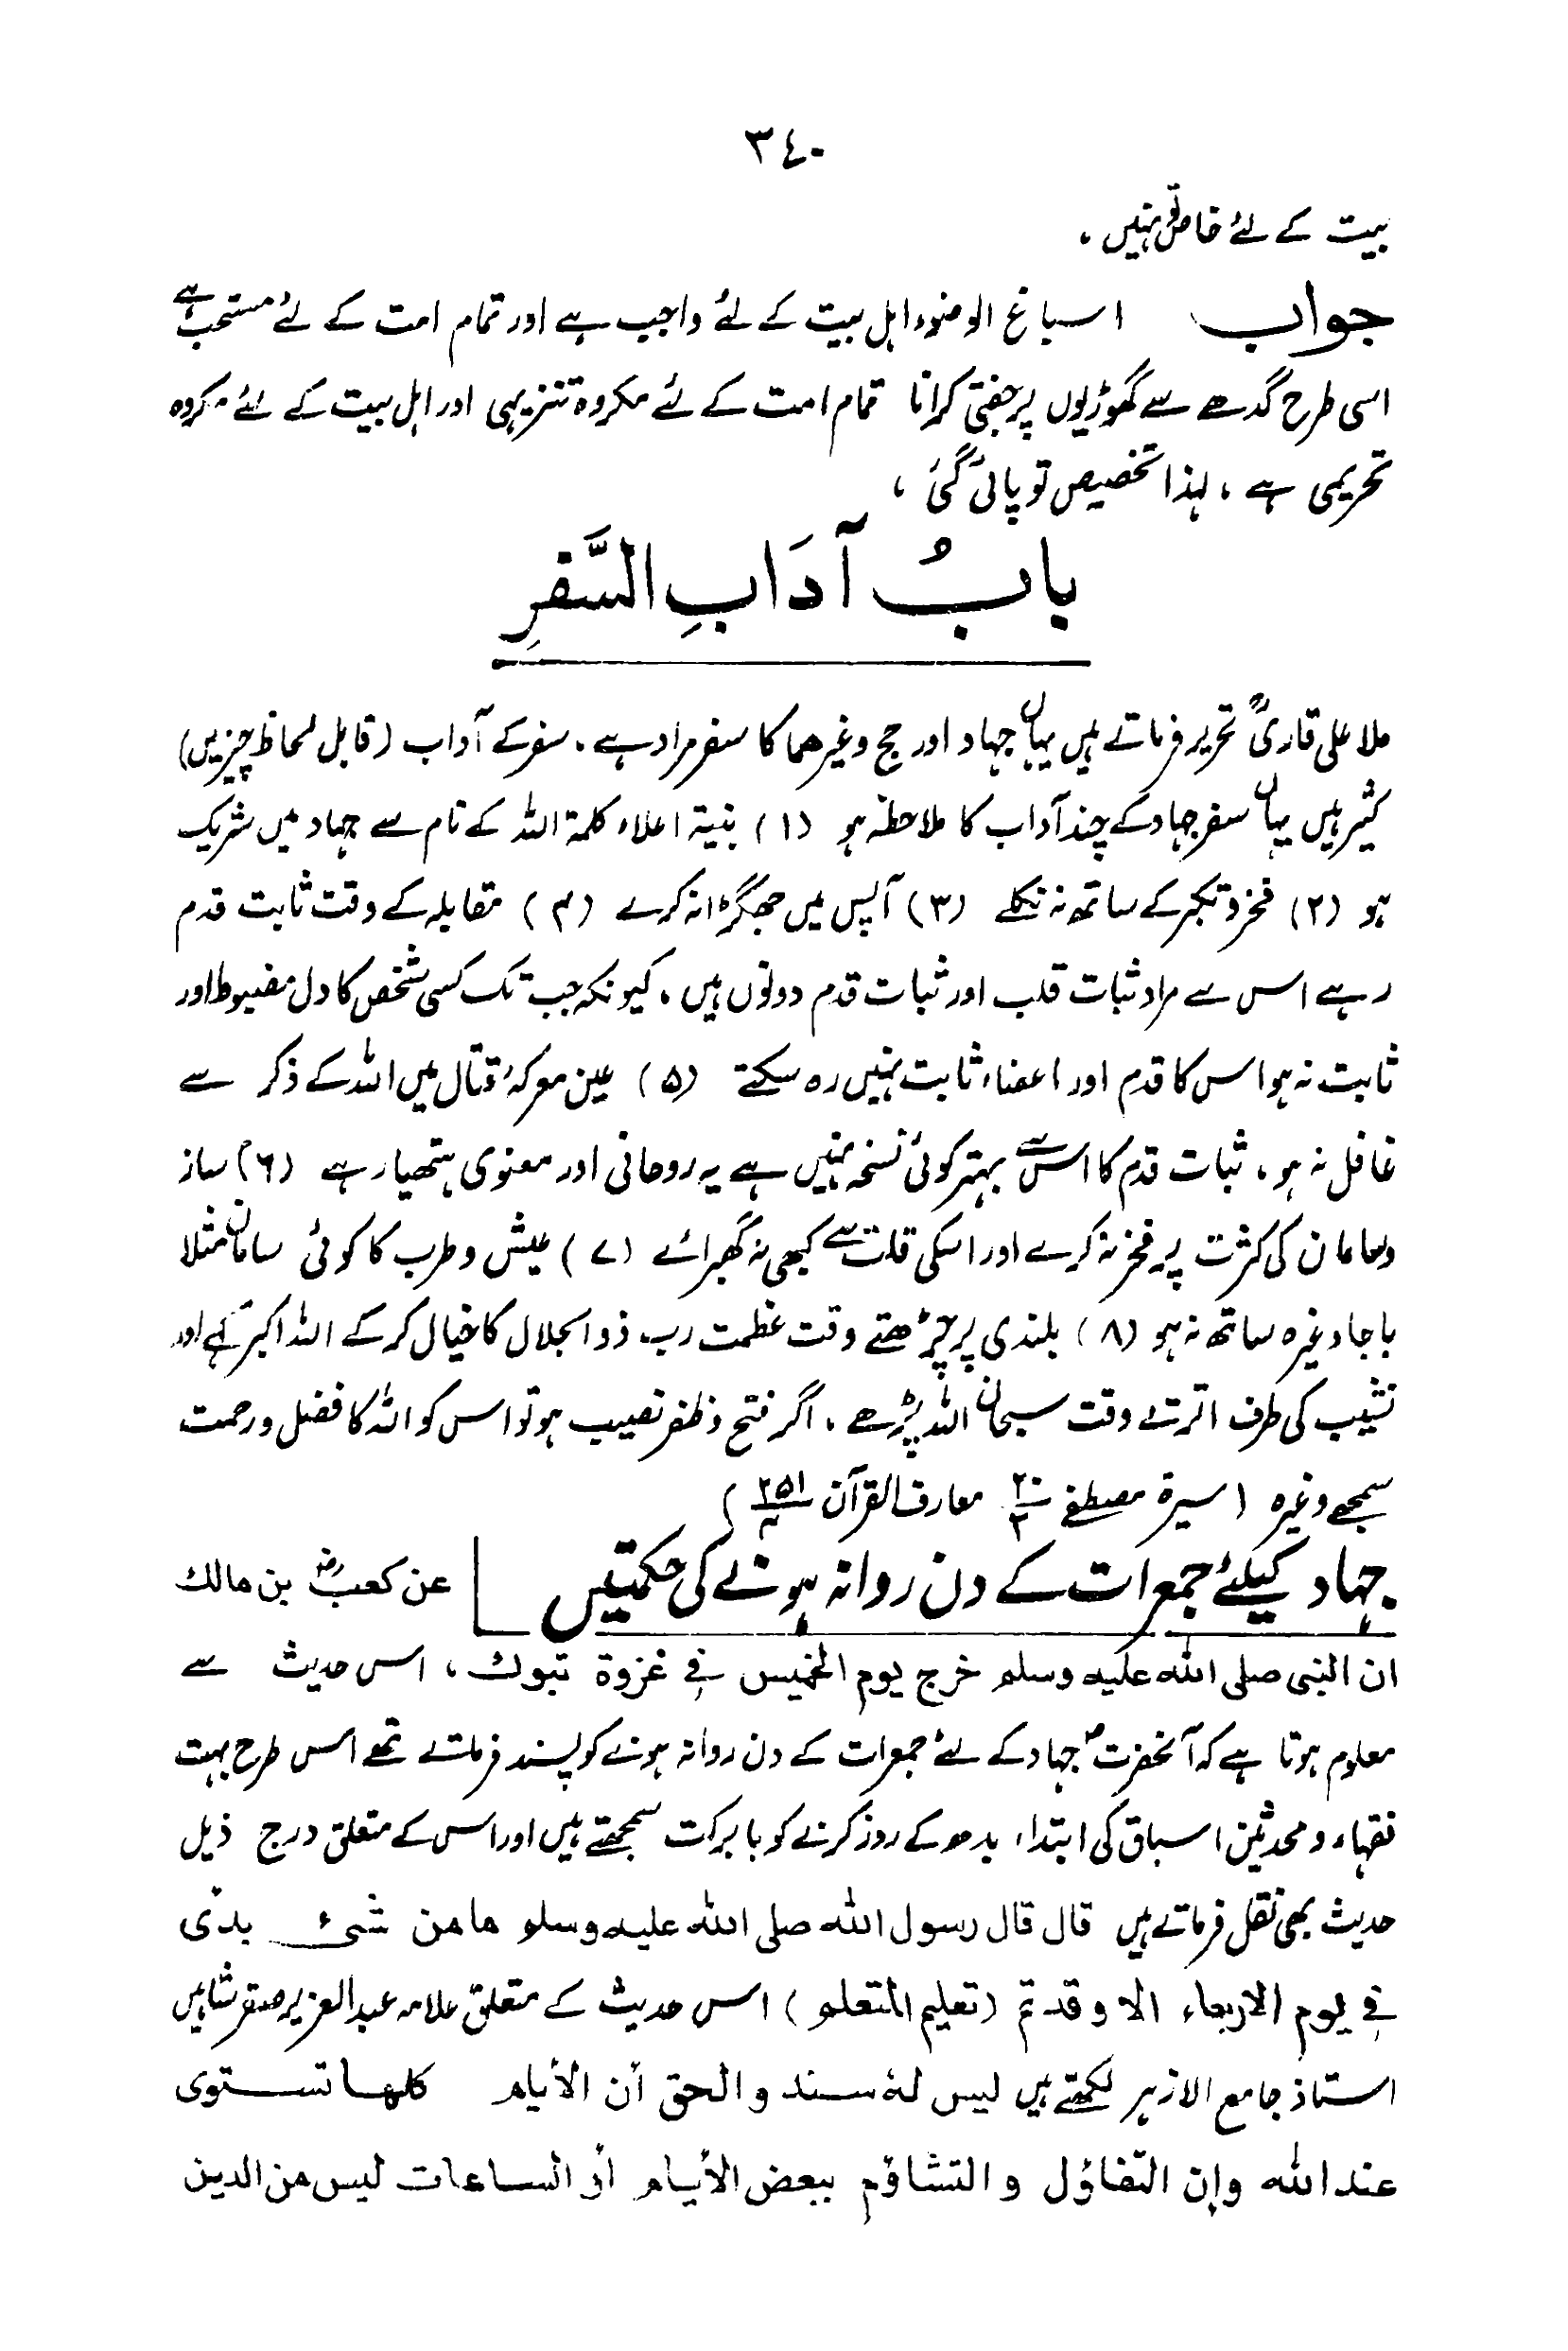 ٣٤٠
بیت کے لئے خاص تو نہیں ،
جواب اسباغ الوضوء اہل بیت کے لئے واجب ہے اور تمام امت کے لئے مستحب ہے
اسی طرح گدھے سے گھوڑیوں پر جفتی کرانا تمام امت کے لئے مکروہ تنزیہی اور اہل بیت کے لئے مکروہ
تحریمی ہے ، لہذا تخصیص تو پائی گئی ،
بابُ آدَابِ السَّفَرِ
ملا علی قاریؒ تحریر فرماتے ہیں یہاں جہاد اور حج وغیرھما کا سفر مراد ہے ، سفر کے آداب (قابل لحاظ چیزیں)
کثیر ہیں یہاں سفر جہاد کے چند آداب کا ملاحظہ ہو (۱) بنیۃ اعلاء کلمۃ اللہ کے نام سے جہاد میں شریک
ہو (۲) فخر و تکبر کے ساتھ نہ نکلے (۳) آپس میں جھگڑا نہ کرے (۴) مقابلہ کے وقت ثابت قدم
رہے اس سے مراد ثبات قلب اور ثبات قدم دونوں ہیں ، کیونکہ جب تک کسی شخص کا دل مضبوط اور
ثابت نہ ہو اس کا قدم اور اعضاء ثابت نہیں رہ سکتے (۵) عین معرکۂ قتال میں اللہ کے ذکر سے
غافل نہ ہو ، ثبات قدم کا اس سے بہتر کوئی نسخہ نہیں ہے یہ روحانی اور معنوی ہتھیار ہے (۶) ساز
وسامان کی کثرت پر فخر نہ کرے اور اسکی قلت سے کبھی نہ گھبرائے (۷) عیش و طرب کا کوئی سامان مثلا
باجا وغیرہ ساتھ نہ ہو (۸) بلندی پر چڑھتے وقت عظمت رب ذوالجلال کا خیال کر کے اللہ اکبر کہے اور
نشیب کی طرف اترتے وقت سبحان اللہ پڑھے ، اگر فتح و ظفر نصیب ہو تو اس کو اللہ کا فضل و رحمت
سمجھے وغیرہ (سیرۃ مصطفے ۲۰/۲ معارف القرآن ۲۵۱/۴)
جہاد کیلئے جمعرات کے دن روانہ ہونے کی حکمتیں عن کعبؓ بن مالك
ان النبی صلی اللہ علیہ وسلم خرج یوم الخمیس فی غزوة تبوك ، اس حدیث سے
معلوم ہوتا ہے کہ آنحضرت ؐ جہاد کے لئے جمعرات کے دن روانہ ہونے کو پسند فرماتے تھے اس طرح بہت
فقہاء و محدثین اسباق کی ابتداء بدھ کے روز کرنے کو بابرکت سمجھتے ہیں اور اس کے متعلق درج ذیل
حدیث بھی نقل فرماتے ہیں قال قال رسول اللہ صلی اللہ علیہ وسلم ما من شیء بدئ
فی یوم الاربعاء الا وقد تم (تعلیم المتعلم) اس حدیث کے متعلق علامہ عبدالعزیر صقر شاہین
استاذ جامع الازہر لکھتے ہیں لیس لہ سند والحق أن الأیام کلھا تستوی
عند اللہ وإن التفاؤل والتشاؤم ببعض الأیام أو الساعات لیس من الدین